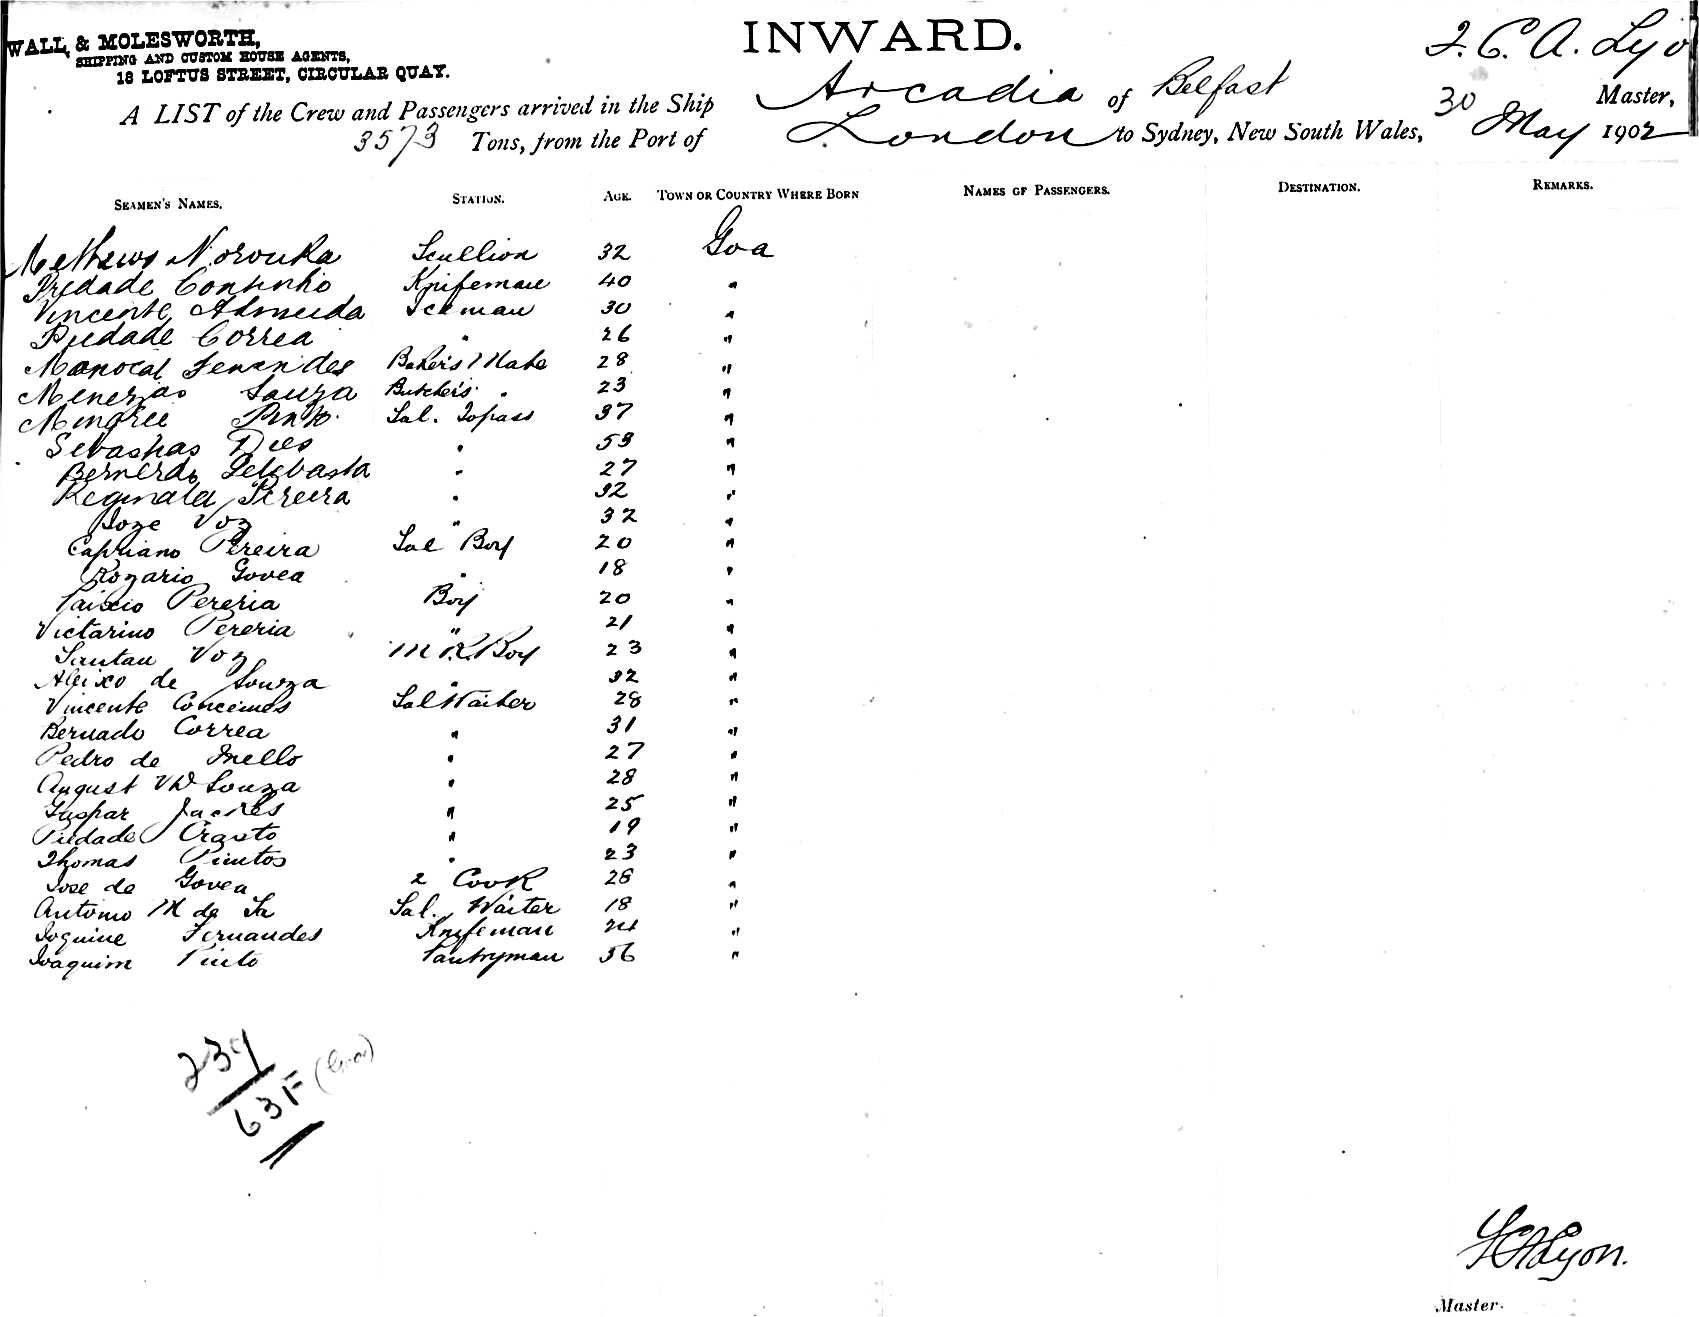 WALL & MOLESWORTH,
SHIPPING AND CUSTOM HOUSE AGENTS,
18 LOFTUS STREET, CIRCULAR QUAY.
INWARD.
A LIST of the Crew and Passengers arrived in the Ship Arcadia of Belfast Master,
3573 Tons, from the Port of London to Sydney, New South Wales, 30 May 1902
SEAMEN'S NAMES. STATION. AGE. TOWN OR COUNTRY WHERE BORN NAMES OF PASSENGERS. DESTINATION. REMARKS.
Mathews Scullion 32 Goa
Knifeman 40 "
Vincente Almeida Iceman 30 "
Piedade Correa " 26 "
Manoel Fernandes Baker's Mate 28 "
Souza Butcher's " 23 "
Pinto Sal. Topass 37 "
Dies " 53 "
" 27 "
Reginald Pereira " 32 "
Joze Voz " 32 "
Capriano Pereira Sal Boy 20 "
Rozario Govea " 18 "
Pereria Boy 20 "
Victarino Pereria " 21 "
Santan Voz M R. Boy 23 "
Aleixo de Souza " 32 "
Vincente Sal Waiter 28 "
Bernado Correa " 31 "
Pedro de Mello " 27 "
August Souza " 28 "
Gaspar " 25 "
Piedade " 19 "
Thomas Pintos " 23 "
Jose de Govea 2 Cook 28 "
Antonio M de Sa Sal. Waiter 18 "
Joquine Fernandes Knifeman 24 "
Joaquim Pinto Pantryman 56 "
239
63 F (Goa)
Lyon.
Master.